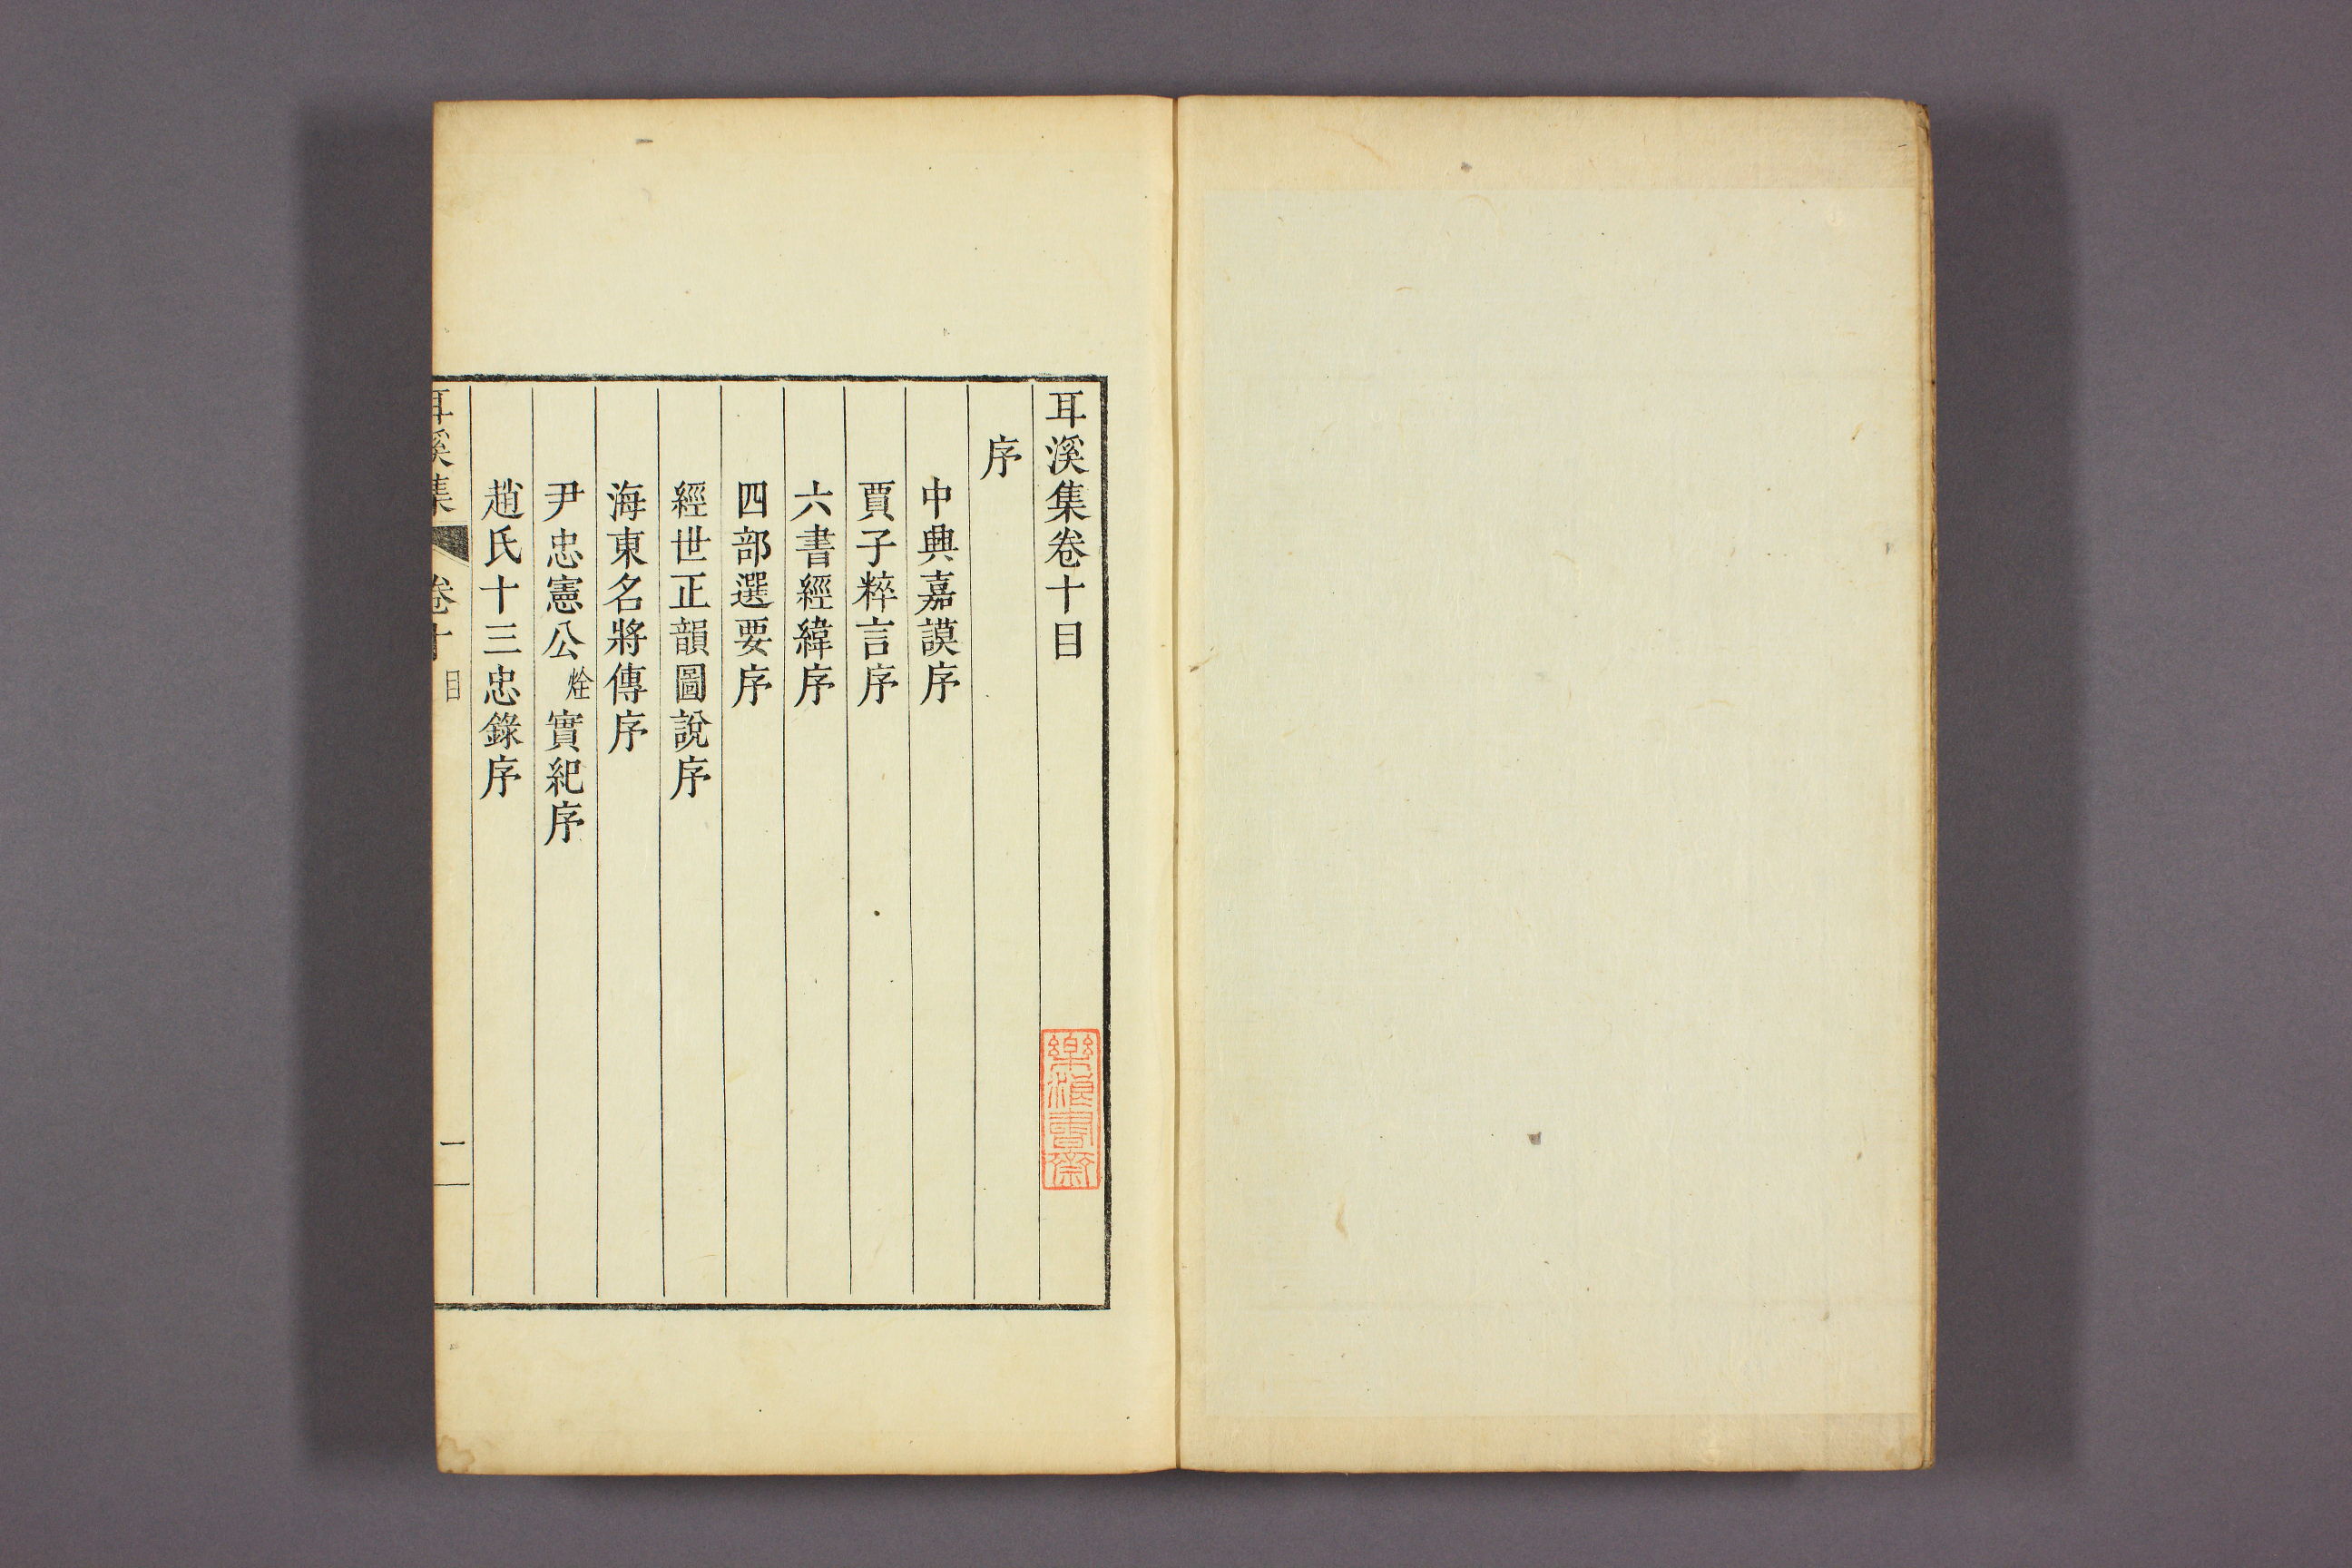 耳溪集卷十目
序
中興嘉謨序
賈子粹言序
六書經緯序
四部選要序
經世正韻圖說序
海東名將傳序
尹忠憲公烇實紀序
趙氏十三忠錄序
耳溪集 卷十 目 一
樂浪書齋